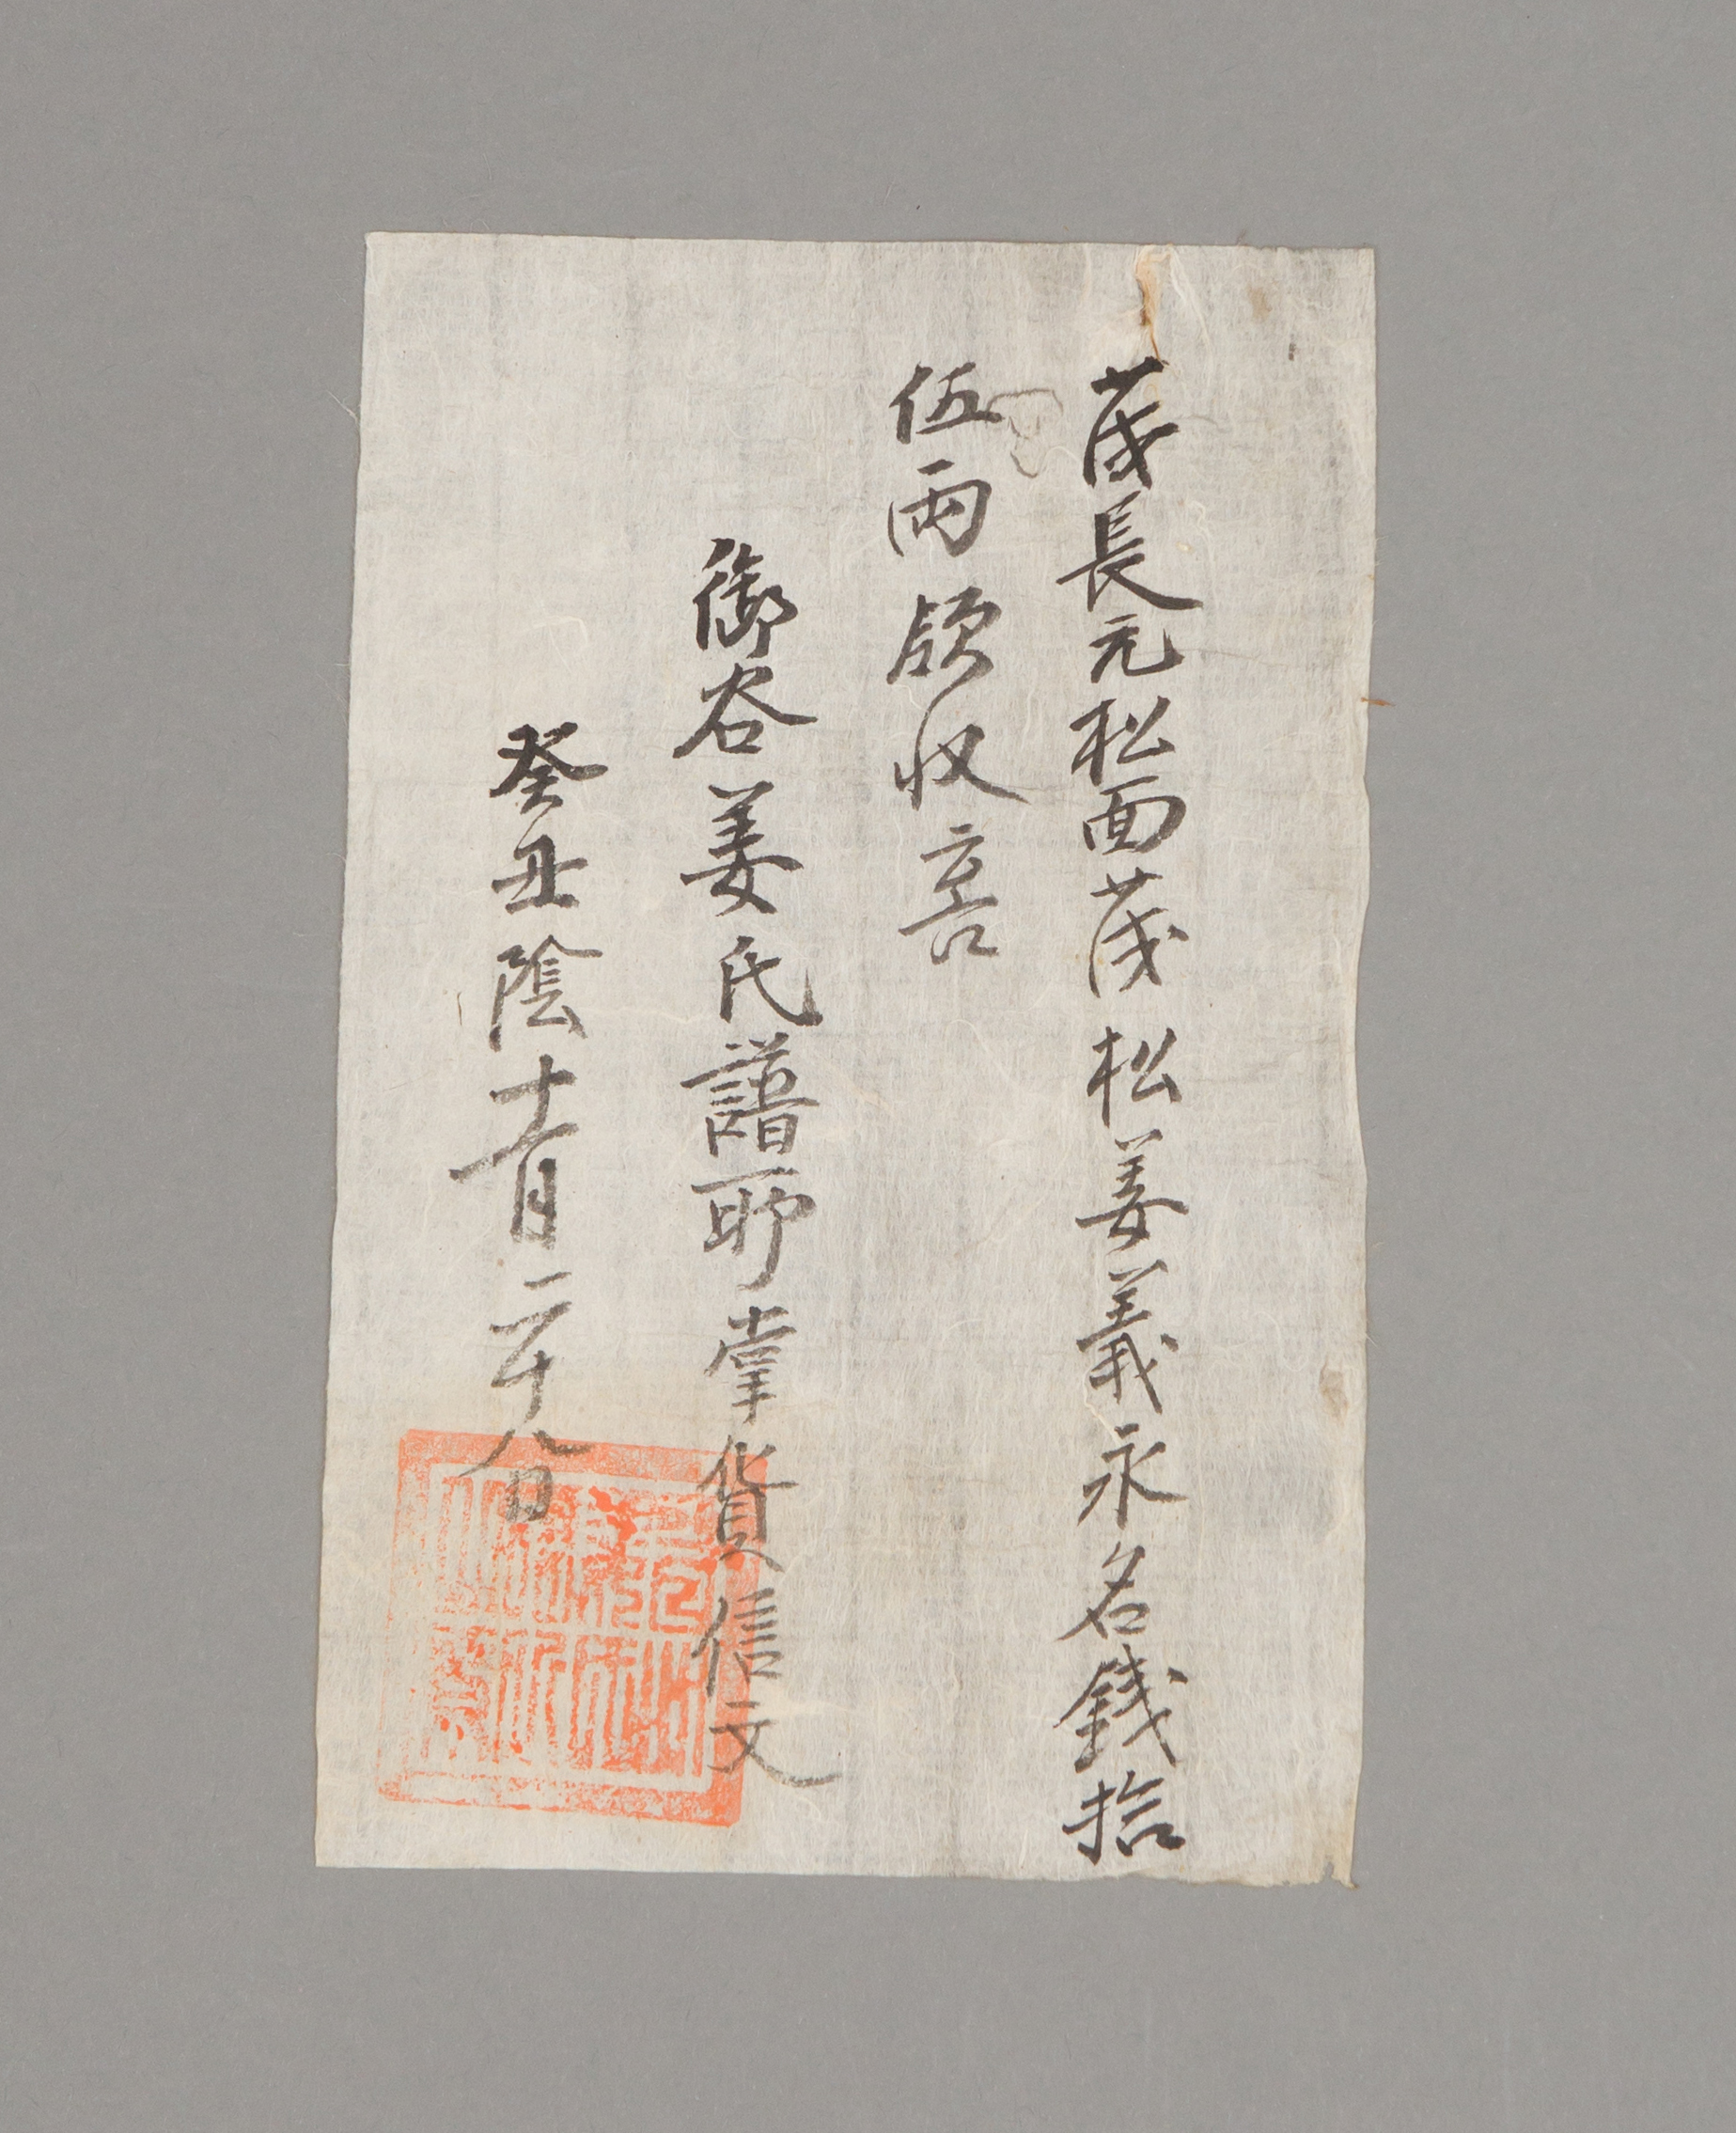 茂長元松面茂松姜義永名錢拾
伍兩領収喜
御谷姜氏譜所掌貨信文
癸丑陰十一月二十八日